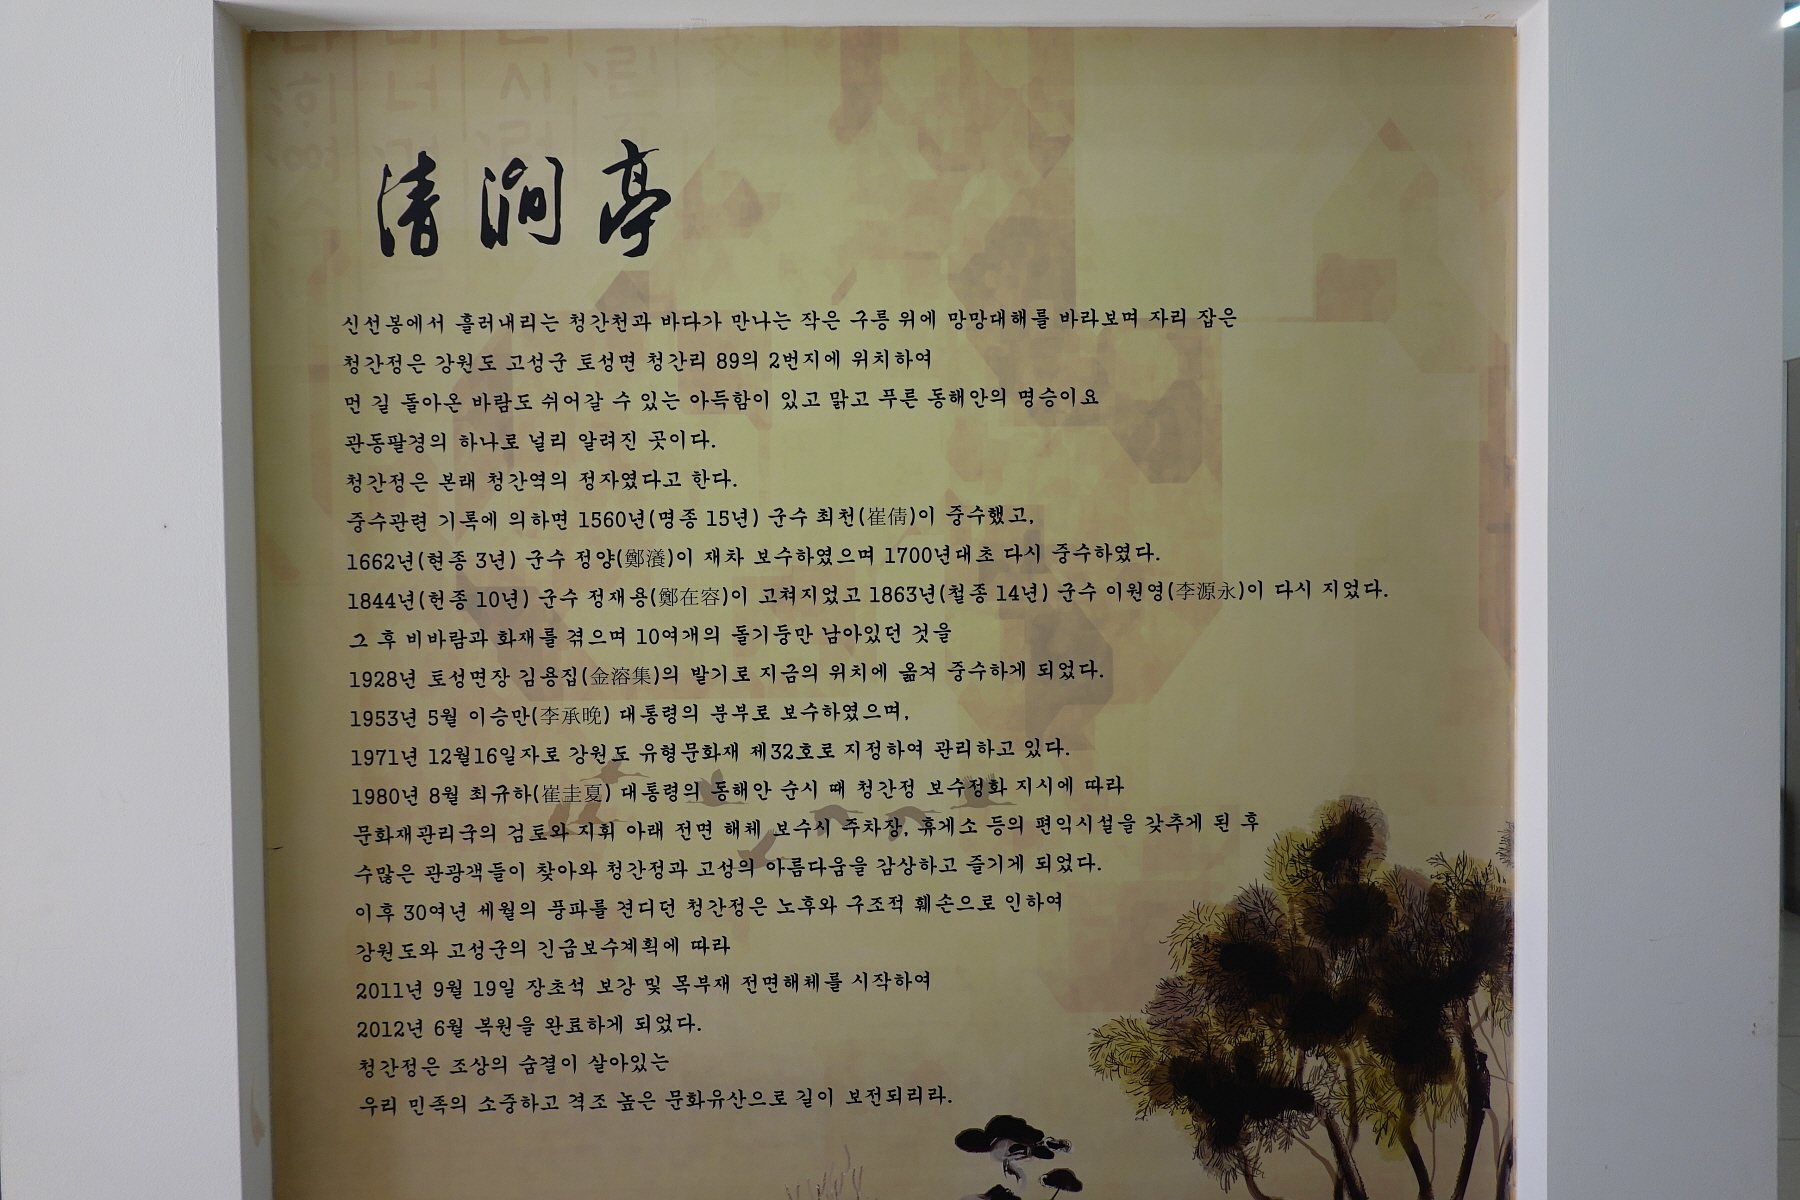 淸澗亭
신선봉에서 흘러내리는 청간천과 바다가 만나는 작은 구릉 위에 망망대해를 바라보며 자리 잡은
청간정은 강원도 고성군 토성면 청간리 89의 2번지에 위치하여
먼 길 돌아온 바람도 쉬어갈 수 있는 아득함이 있고 맑고 푸른 동해안의 명승이요
관동팔경의 하나로 널리 알려진 곳이다.
청간정은 본래 청간역의 정자였다고 한다.
중수관련 기록에 의하면 1560년(명종 15년) 군수 최천(崔倩)이 중수했고,
1662년(현종 3년) 군수 정양(鄭瀁)이 재차 보수하였으며 1700년대초 다시 중수하였다.
1844년(헌종 10년) 군수 정재용(鄭在容)이 고쳐지었고 1863년(철종 14년) 군수 이원영(李源永)이 다시 지었다.
그 후 비바람과 화재를 겪으며 10여개의 돌기둥만 남아있던 것을
1928년 토성면장 김용집(金溶集)의 발기로 지금의 위치에 옮겨 중수하게 되었다.
1953년 5월 이승만(李承晩) 대통령의 분부로 보수하였으며,
1971년 12월16일자로 강원도 유형문화재 제32호로 지정하여 관리하고 있다.
1980년 8월 최규하(崔圭夏) 대통령의 동해안 순시 때 청간정 보수정화 지시에 따라
문화재관리국의 검토와 지휘 아래 전면 해체 보수시 주차장, 휴게소 등의 편익시설을 갖추게 된 후
수많은 관광객들이 찾아와 청간정과 고성의 아름다움을 감상하고 즐기게 되었다.
이후 30여년 세월의 풍파를 견디던 청간정은 노후와 구조적 훼손으로 인하여
강원도와 고성군의 긴급보수계획에 따라
2011년 9월 19일 장초석 보강 및 목부재 전면해체를 시작하여
2012년 6월 복원을 완료하게 되었다.
청간정은 조상의 숨결이 살아있는
우리 민족의 소중하고 격조 높은 문화유산으로 길이 보전되리라.